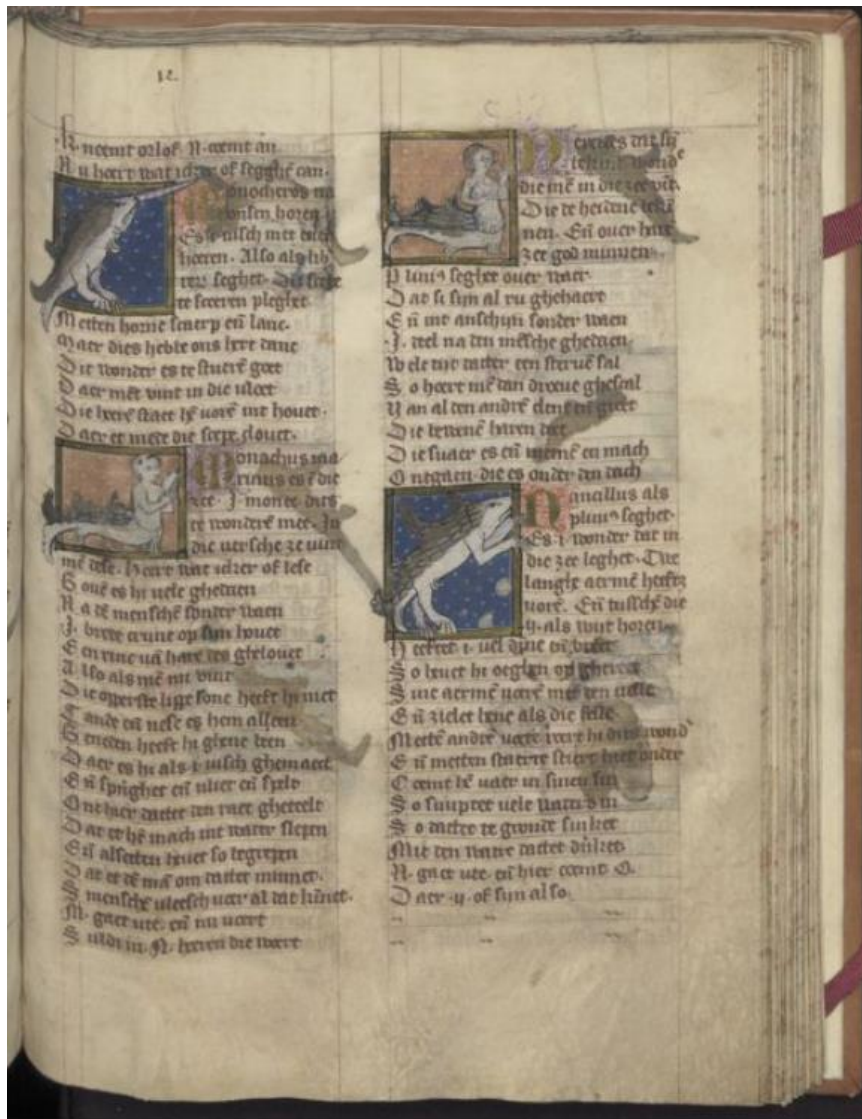 K. neemt orlof N. coemt an
N u hoert wat ic hier of segghē can.
Monocheros na
onsen horen
Es i. uisch met enen
hoeren. Also als ih
seghet. Die scepe
te sceeren pleghet
Metten horne scaerp eñ lanc.
Maer dies hebbe ons here danc
Die wonder es te sturē goet
Daer mēt vint in die vloet
Die herē staet hē uorē int houet.
Daer et mede die scepe clouet.
Monachus ma
rinus es ē die
zee. J. monec dits
te wonderē mee. In
die uersche ze uint
mē dese. Hoert wat ic hier of lese
Bouē es hi uele ghedaen
Na dē menschē sonder waen
J. brede crune op sijn houet
Een rinc uā hare des ghelouet
Also als mē nu vint
Die opperste lippe sone heeft hi niet
Tande eñ nese es hem alleen
Beneden heeft hi ghene been
Daer es hi als i. uisch ghemaect
Eñ springhet eñ vliet eñ spelt
Ont hier dattet den raet gheteelt
Dat et hē mach int water slepen
Eñ alsetten heuet so begrepen
Dat et dē mā om dattet minnet.
Smenschē vleesch ueer al dat kinnet.
M. gaet ute. eñ nu uoert
Suldi in N. horen die woert
Nereides dat sijn
int wonder
die mē in die zee vint.
Die de heidene
nen. Eñ ouer hare
zee god minnen.
Plinius seghet ouer waer
Dat si sijn al ru ghehaert
Eñ int anschijn sonder waen
J. deel na den mēsche ghedaen
Welc tijt datter een steruē sal
So hoert mē dan droeue ghescal
Van al den andrē clene eñ groet
Die bewenē haren doet
Die swaer es eñ niemē en mach
Ontgaen die es onder den dach
Nauclius als
plinius seghet.
Es i. wonder dat in
die zee leghet. Twe
langhe aermē heeftet
uorē. Eñ tusschē die
ij. als wijt horen.
Heeftet i. uel dinne eñ breet
So heuet hi op ghereet
Sine aermē uoerē met den uelle
Eñ zeilet hene als die snelle
Mettē andrē voete roert hi dats wonder
Eñ metten staerte stiert hiet onder
Coemt hē uaer in sinen sin
So suupet uele waters in
So dattet te gronde sinket
Mit den watre dattet drīket
N. gaet ute. eñ hier coemt O.
Daer .ij. of sijn also